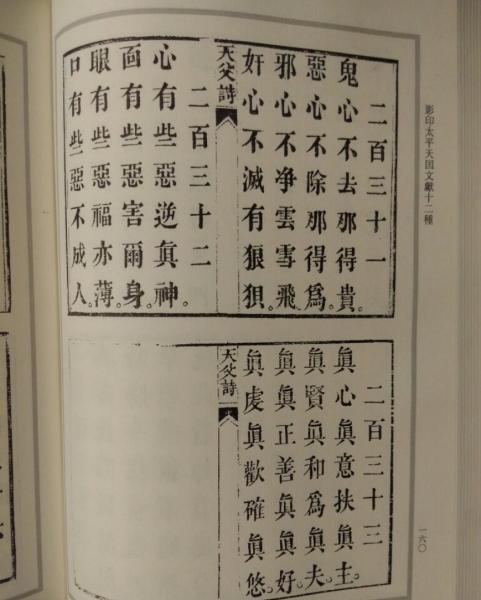 影印太平天囯文獻十二種
二百三十一
鬼心不去那得貴。
惡心不除那得爲。
邪心不净雲雪飛。
奸心不滅有狼狽。
天父詩
二百三十二
心有些惡逆眞神。
面有些惡害爾身。
眼有些惡福亦薄。
口有些惡不成人。
二百三十三
眞心眞意扶眞主。
眞賢眞和爲眞夫。
眞眞正善眞眞好。
眞虔眞歡確眞悠。
天父詩
一六〇